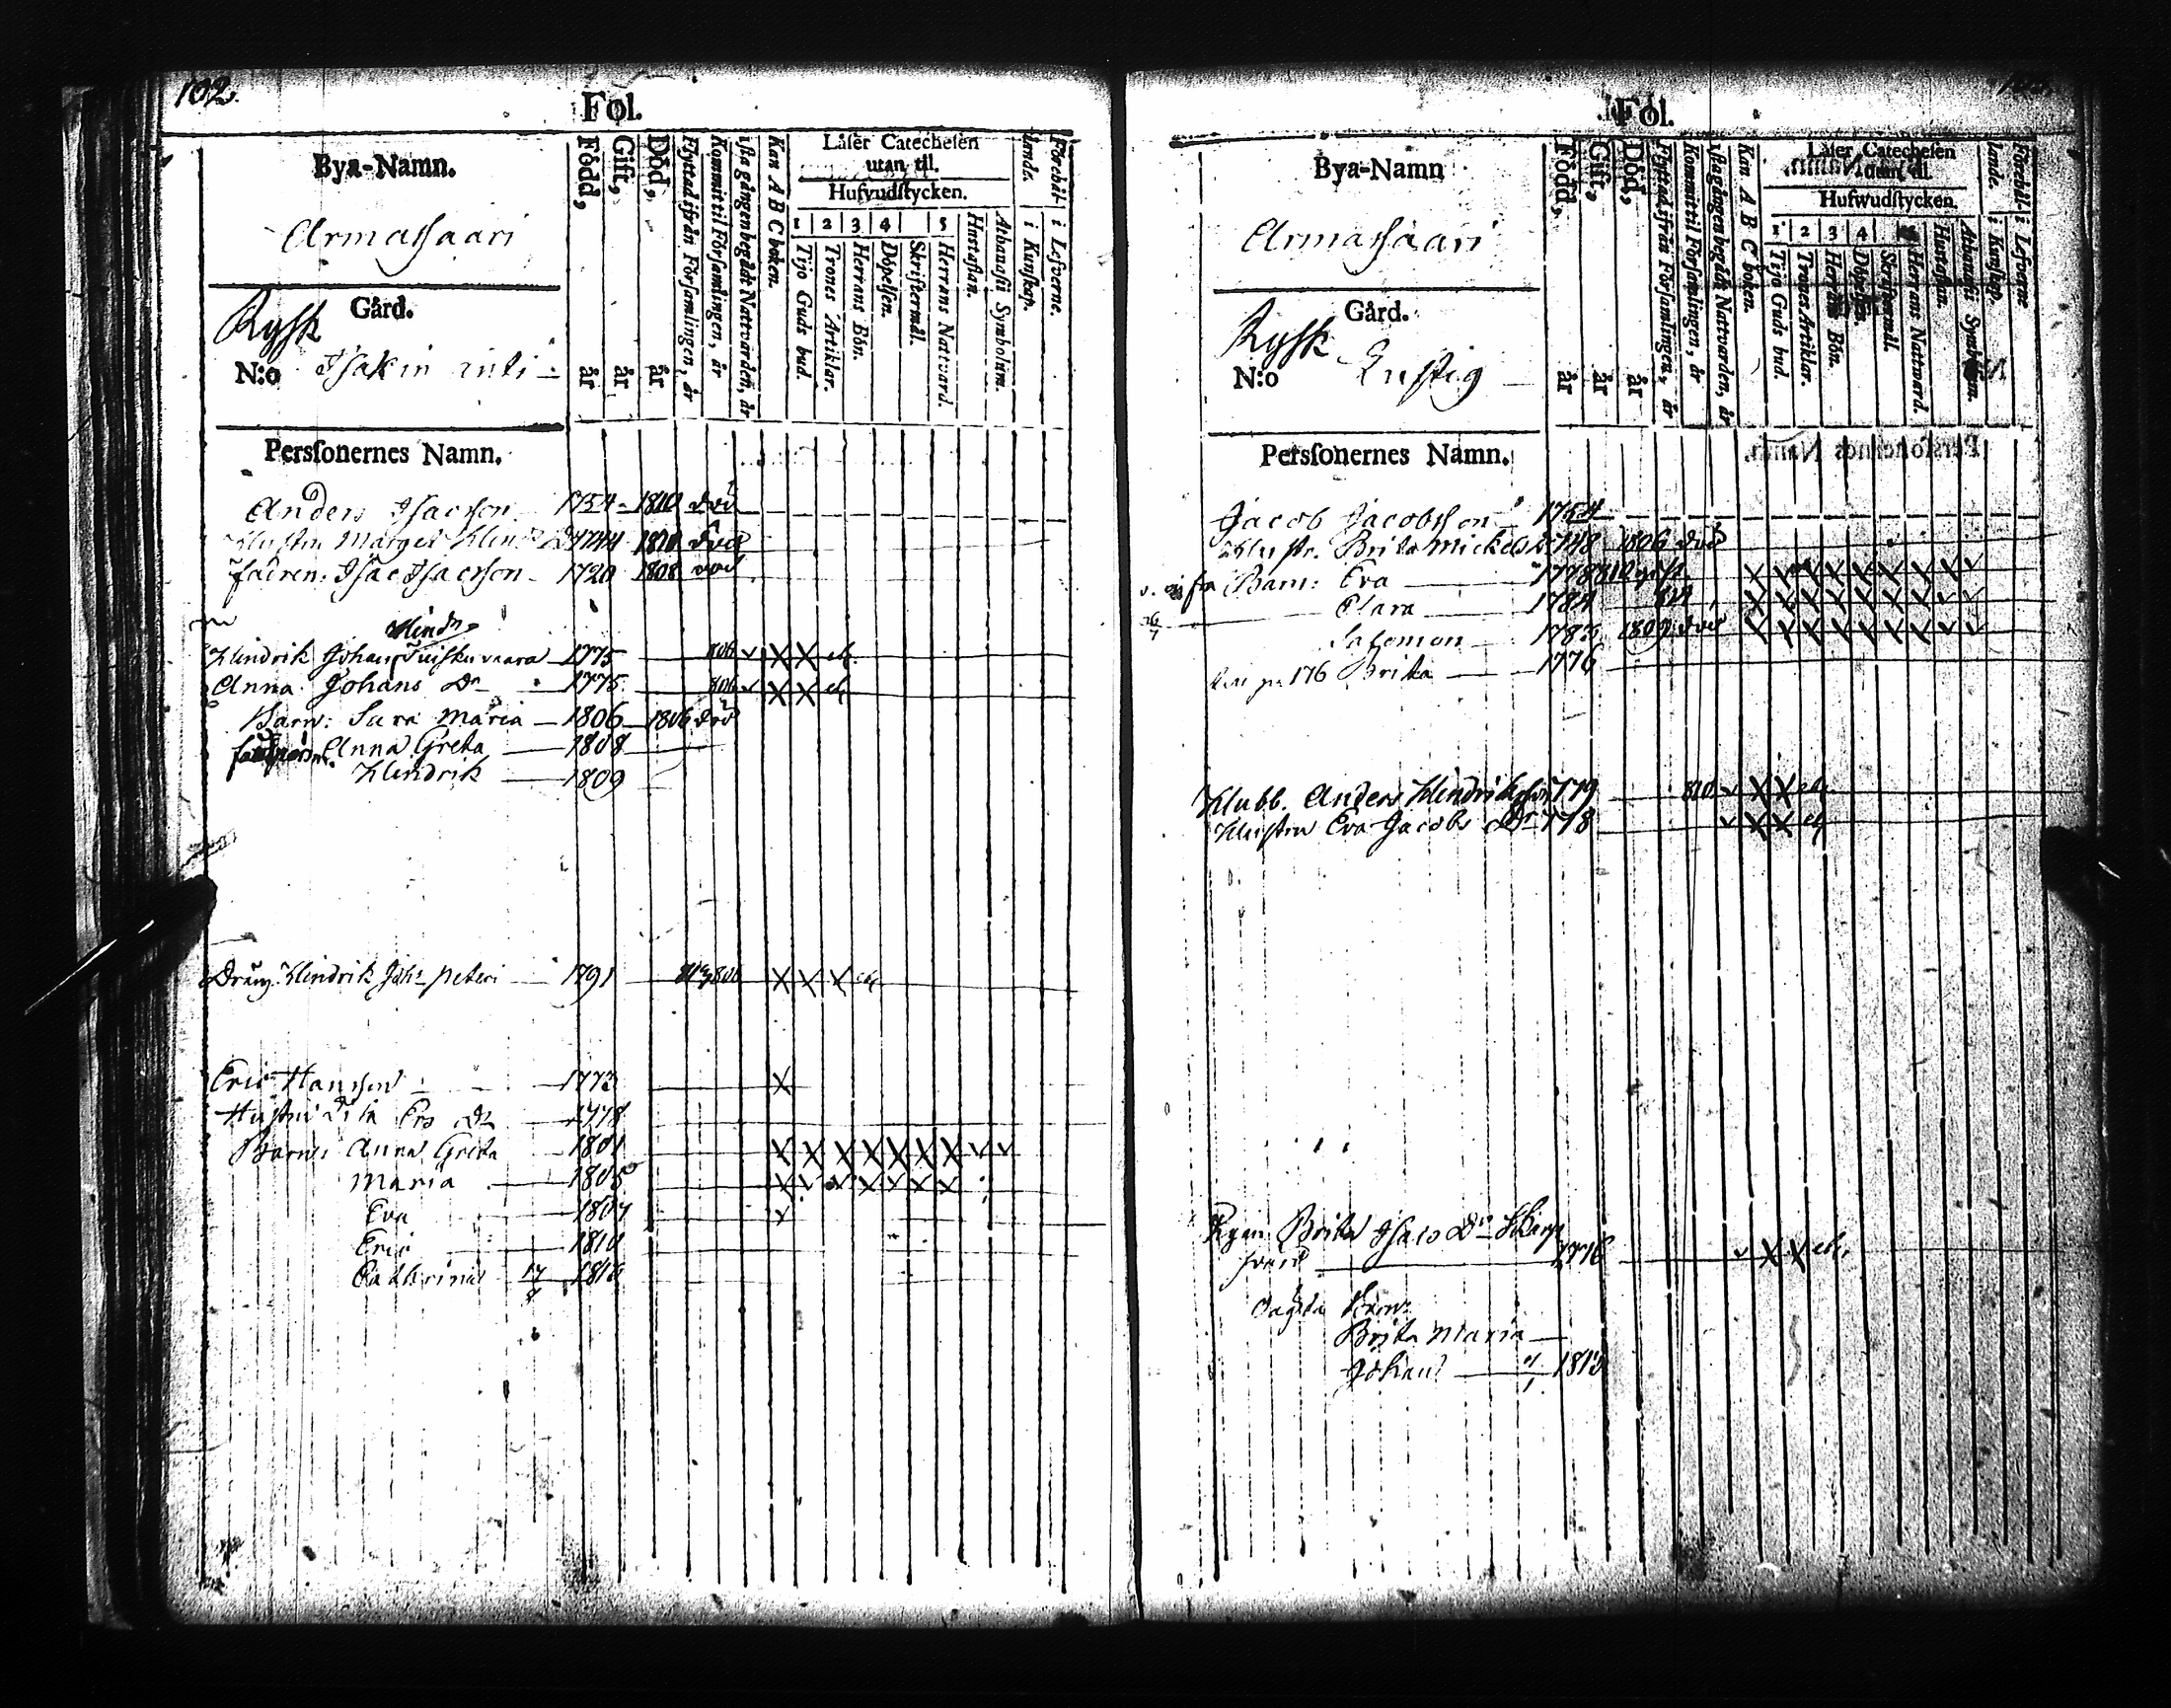 102.
Fol.
Bya-Namn.
Armassaari
Gård.
Rysk
N:o Isakin anti
Född, år
Gift, år
Död, år
Flyttad ifrån Församlingen, år
Kommit til Församlingen, år
ista gången begådt Nattvarden, år
Kan A B C boken.
Läser Catechesen
utan til.
Hufvudstycken.
1 2 3 4 5
Tijo Guds bud.
Trones Artiklar.
Herrans Bön.
Döpelsen.
Skriftermål.
Herrans Nattvard.
Hustaflan.
Athanasii Symbolum.
Förehållande.
i Kunskap.
i Lefverne.
Personernes Namn.
Anders Isacsson 1754 1810 död
Hustru Marget Hind. Dr 1744 1810 död
fadren: Isac Isacsson 1720 1808 död
Hindrik Johan Tuiskuvaara 1775 806
Anna Johans Dr 1775 806
Barn: Sara Maria 1806 1806 död
Anna Greta 1808
Hindrik 1809
Dräng Hindrik Johs Peteri 1791
Eric Hansson 1773
Hustru Ers Dr 1778
Barn: Anna Greta 1801
Maria 1805
Eva 1807
Eric 1810
Catharina 17/8
Fol.
Bya-Namn
Armassaari
Gård.
Rysk
N:o Lustig
Född, år
Gift, år
Död, år
Flyttad ifrån Församlingen, år
Kommit til Församlingen, år
ista gången begådt Nattvarden, år
Kan A B C boken.
Läser Catechesen
utan til.
Hufwudstycken.
1 2 3 4
Tijo Guds bud.
Trones Artiklar.
Herrans Bön.
Döpelsen.
Skriftermål.
Herrans Nattward.
Hustaflan.
Athanasii Symbolum.
Förehållande.
i Kunskap.
i Lefverne
Personernes Namn.
Jacob Jacobsson 1754
Hustr. Brita Mickels Dr 1748 1806 död
Barn: Eva 1778 810 gift
Clara 1784 814
Salomon 1783 1809 död
176 Brita 1776
Hubb. Anders Hindriksson 779 810
Hustru Eva Jacobs Dr 778
Brita Isacs Dr Skarp
1776
Brita Maria
Johan 1813